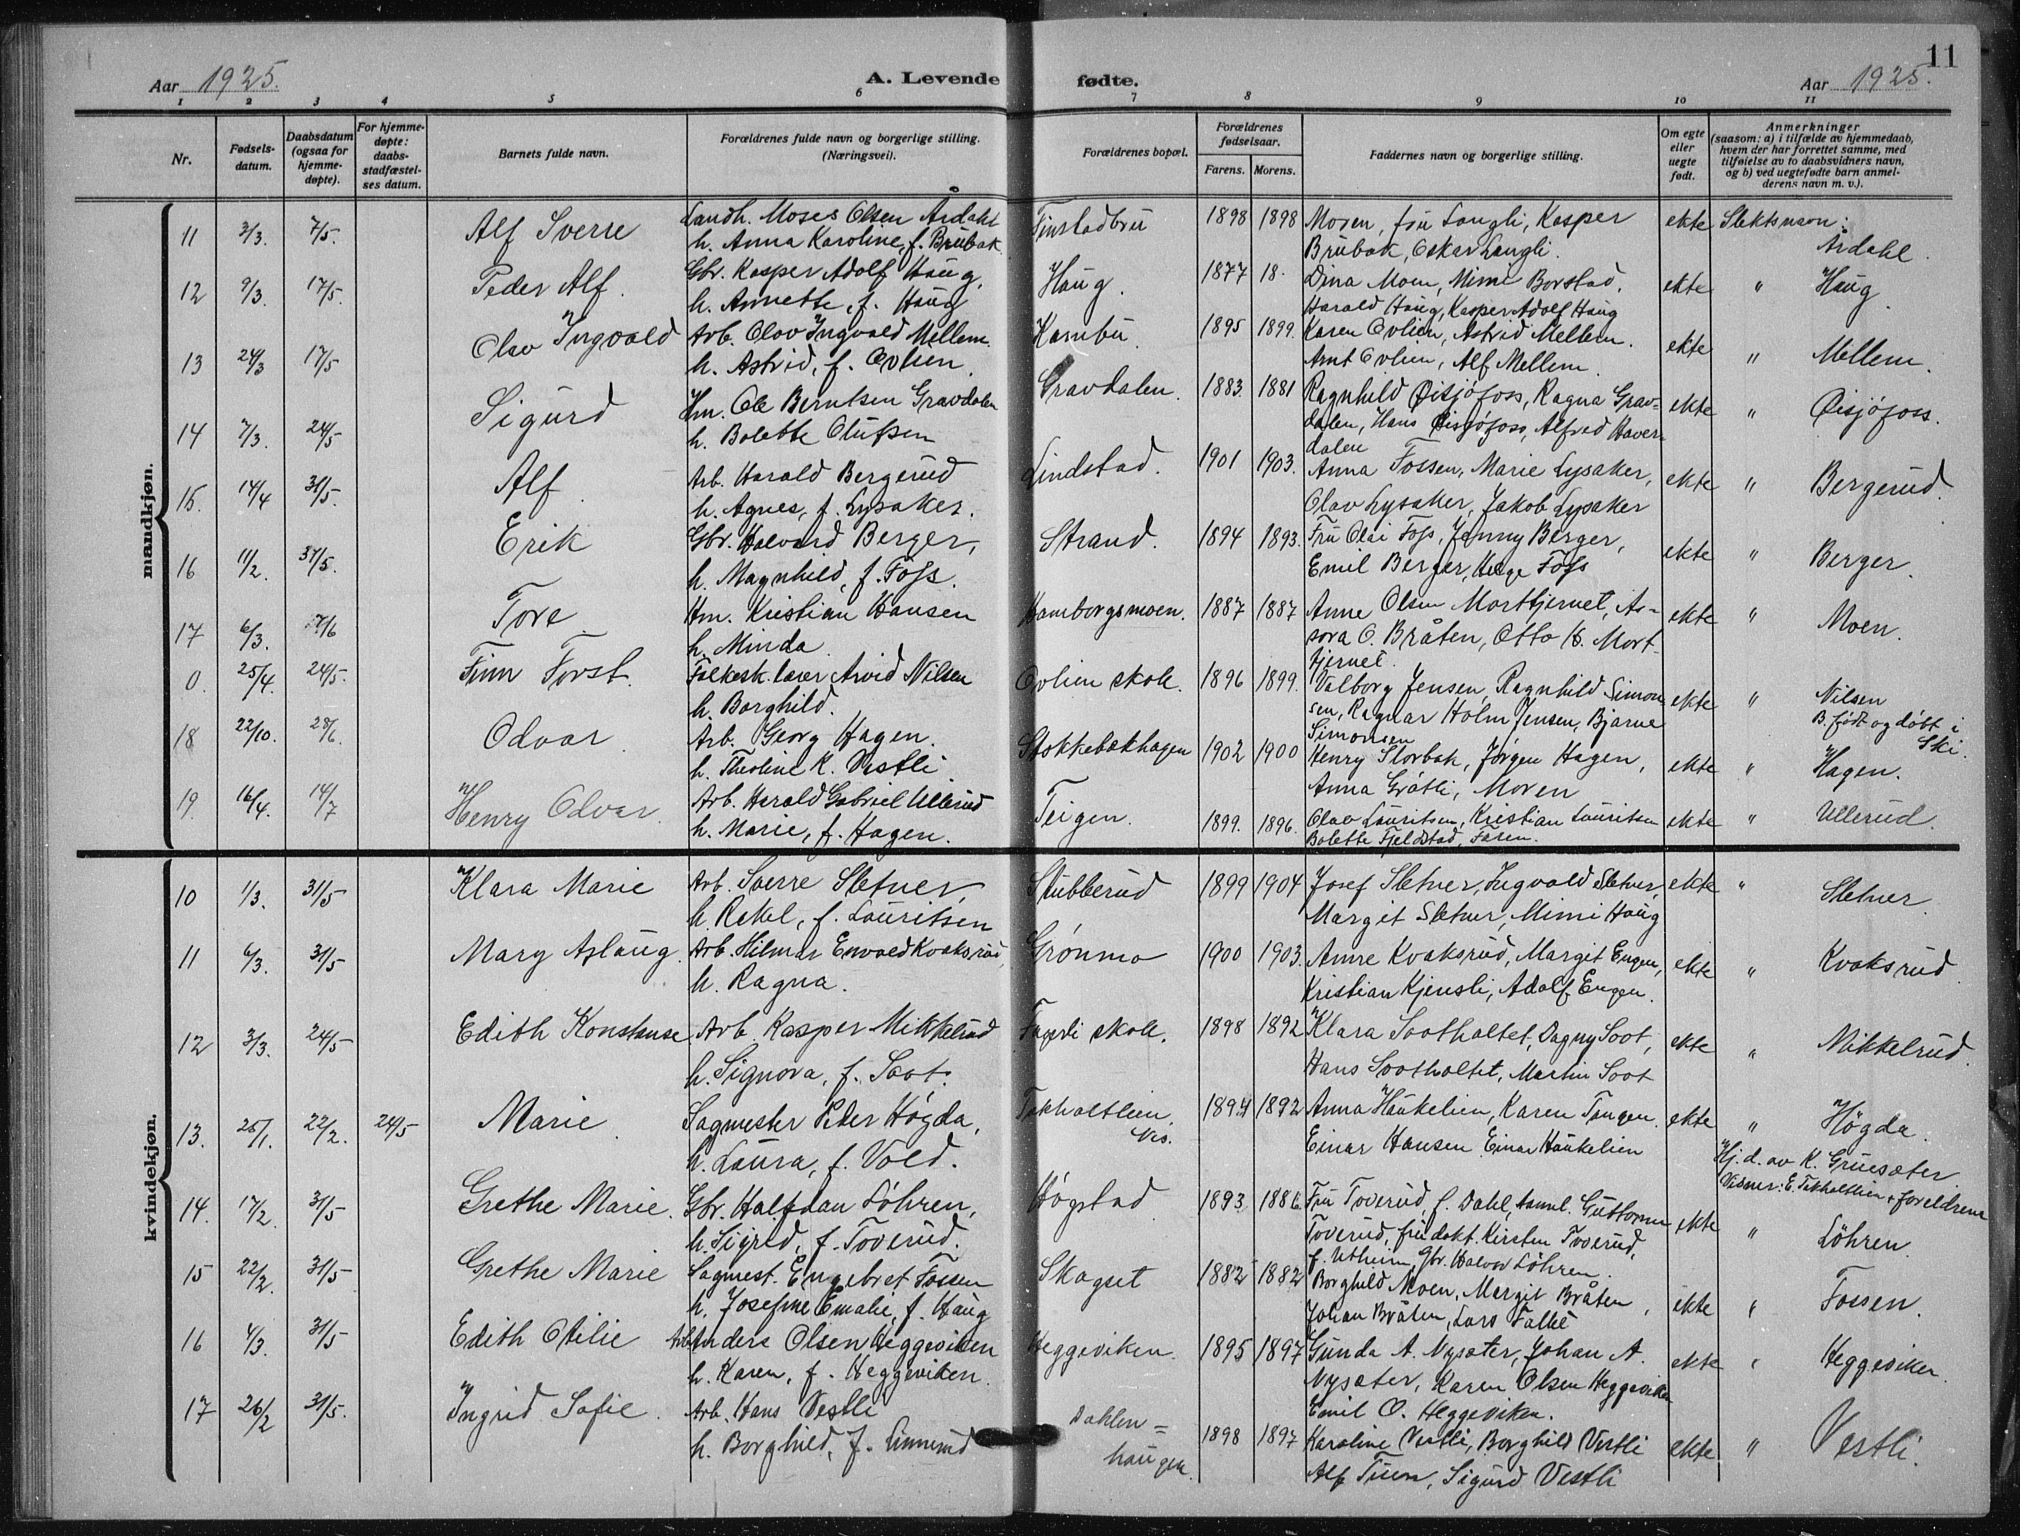 11
Aar 1925. A. Levende fødte. Aar 1925.
1 2 3 4 5 6 7 8 9 10 11
Nr.
Fødsels-
datum.
Daabsdatum
(ogsaa for
hjemme-
døpte).
For hjemme-
døpte:
daabs-
stadfæstel-
ses datum.
Barnets fulde navn.
Forældrenes fulde navn og borgerlige stilling.
(Næringsvei).
Forældrenes bopæl.
Forældrenes
fødselsaar.
Farens. Morens.
Faddernes navn og borgerlige stilling.
Om egte
eller
uegte
født.
Anmerkninger
(saasom: a) i tilfælde av hjemmedaab,
hvem der har forrettet samme, med
tilføielse av to daabsvidners navn,
og b) ved uegtefødte barn anmel-
derens navn m. v.).
mandkjøn.
11 3/3. 7/5. Alf Sverre Landh. Moses Olsen Årdahl Finstadbru 1898 1898 Moren, fru Langli, Kasper ekte Slektsnavn:
h. Anna Karoline, f. Brubak. Brubak, Oskar Langli. Årdahl.
12 9/3. 17/5. Peder Alf. Gbr. Kasper Adolf Haug, Haug. 1877 18. Dina Moen, Mimi Borstad, ekte " Haug.
h. Annette, f. Haug Harald Haug, Kasper Adolf Haug
13 24/3 17/5 Olav Ingvald Arb. Olav Ingvald Mellem. Kambu. 1895 1899. Karen Ovlien, Astrid Mellem. ekte " Mellem.
h. Astrid, f. Ovlien. Arnt Ovlien, Alf Mellem.
14 7/3. 24/5 Sigurd Hm. Ole Berntsen Gravdalen Gravdalen. 1883. 1881 Ragnhild Øisjøfoss, Ragna Grav- ekte " Øisjøfoss.
h. Bolette Olufsen dalen, Hans Øisjøfoss, Alfred Haver-
dalen
15. 14/4 31/5. Alf. Arb. Harald Bergerud Lindstad. 1901 1903. Anna Fossen, Marie Lysaker, ekte " Bergerud.
h. Agnes, f. Lysaker. Olav Lysaker, Jakob Lysaker
16 11/2. 31/5. Erik Gbr. Halvard Berger, Strand. 1894 1893. Fru Olai Foss, Jenny Berger, ekte " Berger.
h. Magnhild, f. Foss. Emil Berger, Helge Foss
17 6/3. 7/6 Tore Hm. Kristian Hansen Hamborgsmoen. 1887 1887 Anne Olsen Morttjernet, As- ekte " Moen.
h. Minda. sora O. Bråten, Otto K. Mort-
tjernet.
0. 25/4. 24/5. Finn Torst. Folkesk.lærer Arvid Nilsen Ovlien skole. 1896 1899. Valborg Jensen, Ragnhild Simon- ekte " Nilsen
h. Borghild. sen, Ragnar Holm Jensen, Bjarne B. født og døbt i
Simonsen Ski.
18 22/10. 28/6. Odvar. Arb. Georg Hagen. Stokkebækhagen 1902 1900 Henry Storbak, Jørgen Hagen, ekte " Hagen.
h. Theoline K. Vestli. Anna Gråtli, Moren
19. 16/4. 14/7 Henry Odvar. Arb. Harald Gabriel Ullerud Teigen. 1899. 1896. Olav Lauritsen, Kristian Lauritsen ekte " Ullerud.
h. Marie, f. Hagen. Bolette Fjeldstad, Faren.
kvindekjøn.
10 1/3. 31/5 Klara Marie Arb. Sverre Sletner, Stubberud 1899 1904 Josef Sletner, Ingvald Sletner, ekte " Sletner.
h. Rakel, f. Lauritsen Margit Sletner, Mimi Haug
11 6/3. 31/5 Mary Aslaug. Arb. Hilmar Envald Kvaksrud, Grønmo 1900 1903. Anne Kvaksrud, Margit Engen, ekte " Kvaksrud
h. Ragna. Kristian Kjensli, Adolf Engen.
12 3/3. 24/5 Edith Konstanse Arb. Kasper Mikkelrud Fagerli skole. 1898 1892 Klara Sootholtet, Dagny Soot, ekte " Mikkelrud
h. Signora, f. Soot. Hans Sootholtet, Martin Soot
13. 25/1. 22/2. 24/5 Marie. Sagmester Peder Høgda, Takholtlien, 1894 1892 Anna Haukelien, Karen Tangen. ekte " Høgda.
h. Laura, f. Vold. Vis. Einar Hansen, Einar Haukelien Hj. d. av K. Gruesæter
Vidner: E. Takholtlien + foreldrene
14. 17/2. 31/5 Grethe Marie. Gbr. Halfdan Løhren, Høgstad 1893 1886. Fru Toverud, f. Dahl, Guttorm ekte " Løhren.
h. Sigrid, f. Toverud. Toverud, fru dokt. Kirsten Toverud,
f. Utheim, Gbr. Halvor Løhren.
15 22/2. 31/5 Grethe Marie Sagmest. Engebret Fossen Skogset 1882 1882 Borghild Moen, Margit Bråten, ekte " Fossen.
h. Josefine Emalie, f. Haug Johan Bråten, Lars Falke
16 4/3. 31/5 Edith Otilie Arb. Anders Olsen Heggeviken Heggeviken. 1895 1897 Gunda A. Nysæter, Johan A. ekte " Heggeviken
h. Karen, f. Heggeviken. Nysæter, Karen Olsen Heggeviken
Emil O. Heggeviken.
17 26/2 31/5. Ingrid Sofie. Arb. Hans Vestli Dahlen= 1898 1897 Karoline Vestli, Borghild Vestli ekte " Vestli.
h. Borghild, f. Linnerud haugen. Alf Tuen, Sigurd Vestli